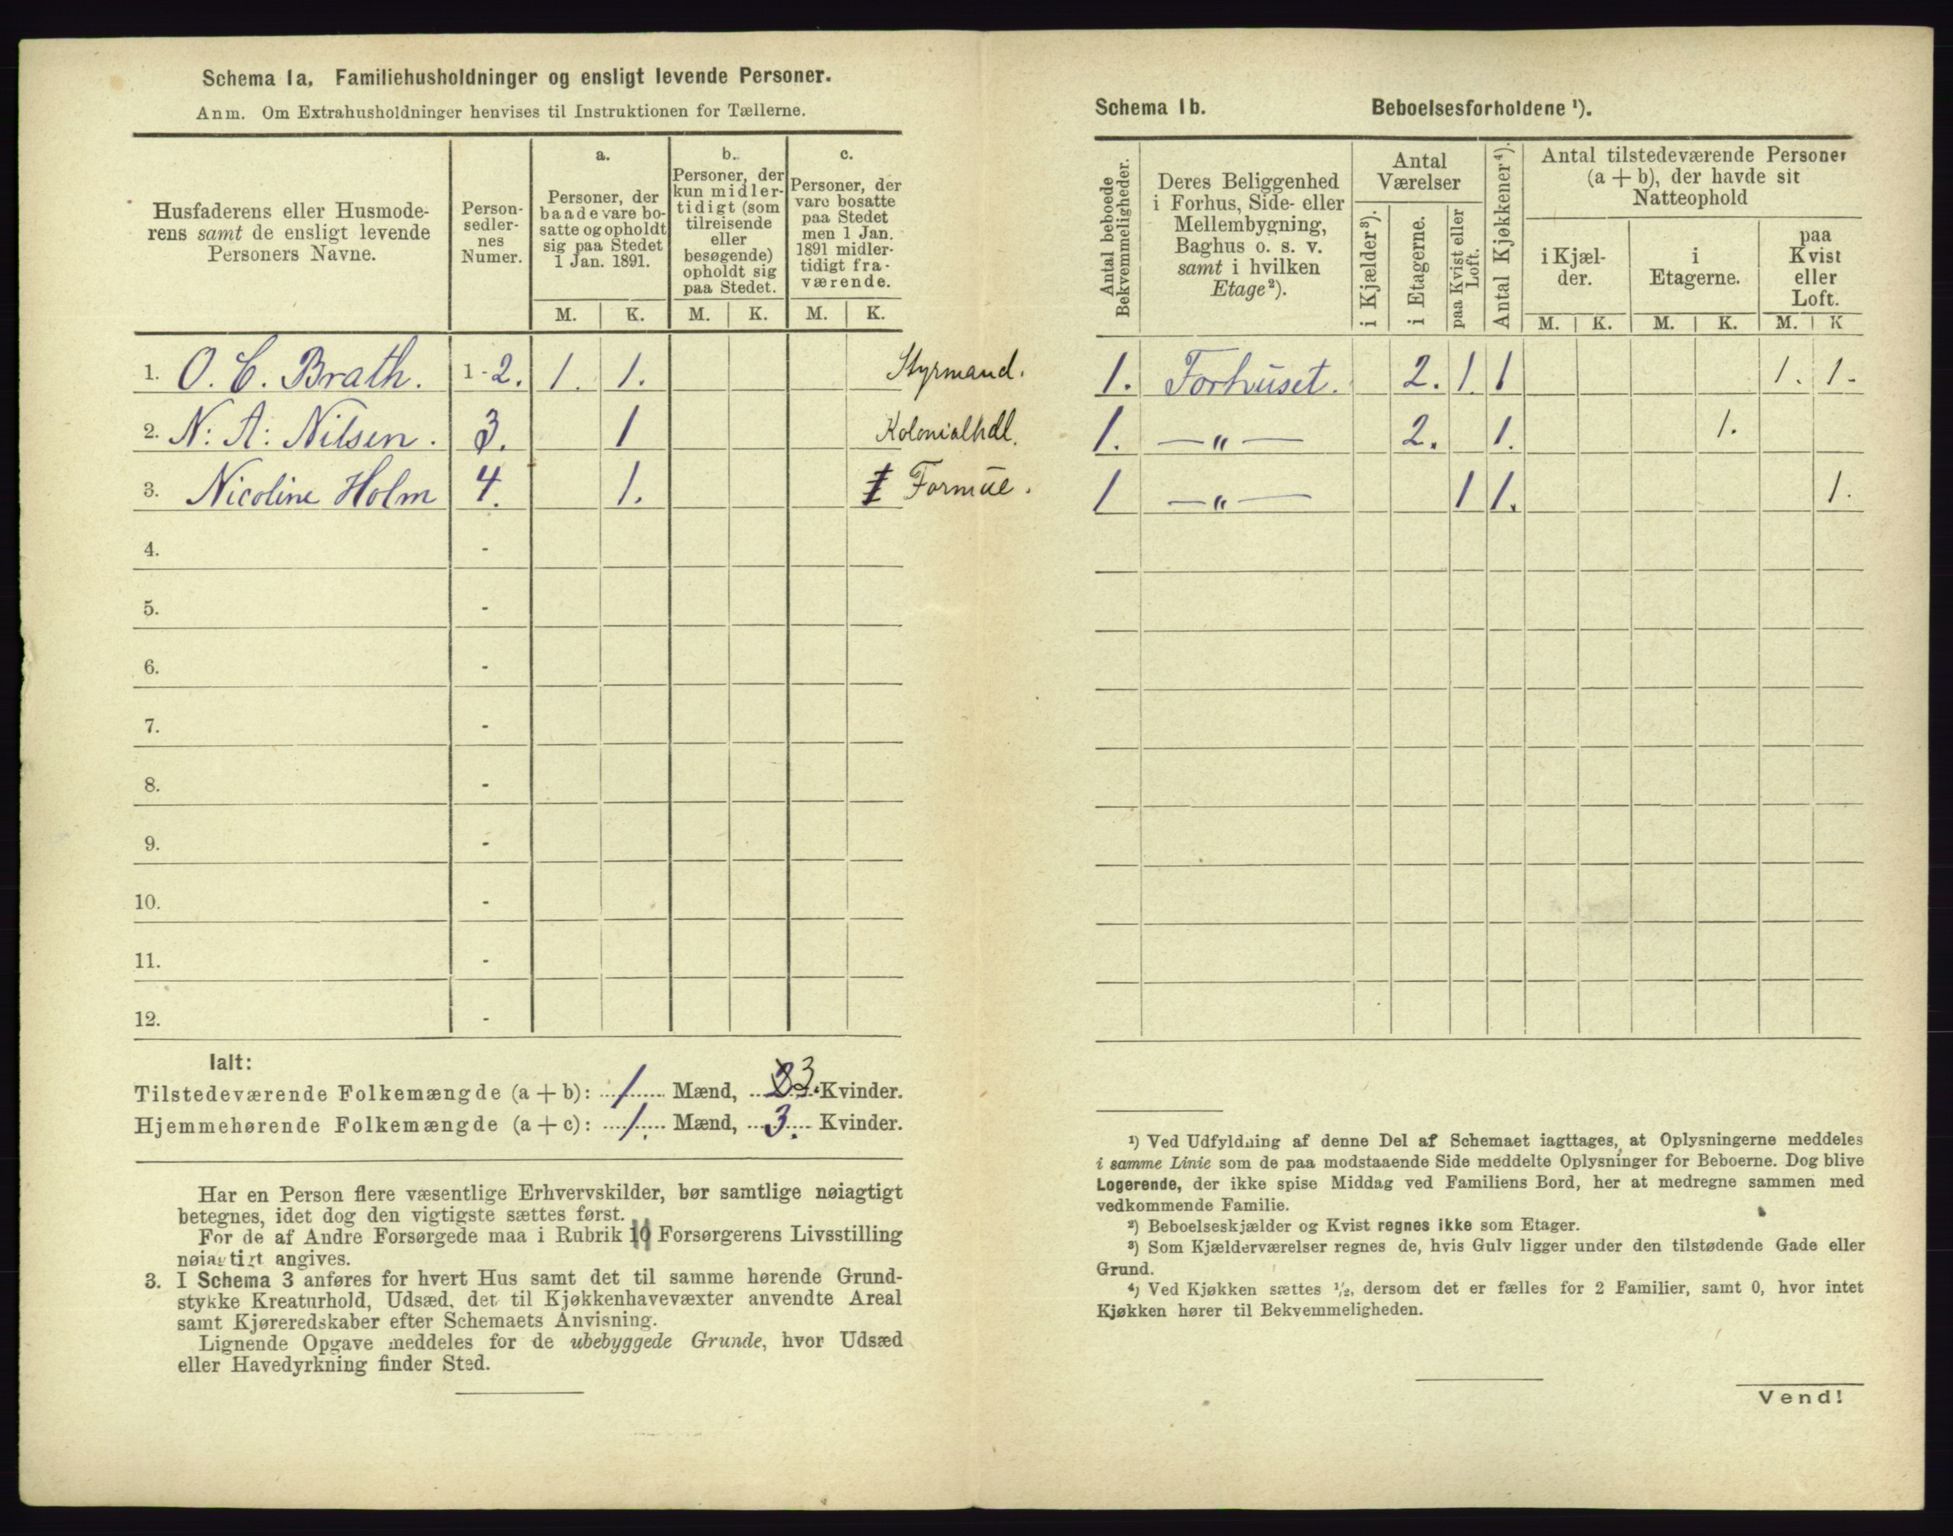 Schema 1a, Familiehusholdninger og ensligt levende Personer.
Anm. Om Extrahusholdninger henvises til Instruktionen for Tællerne.
Husfaderens eller Husmode-
rens samt de ensligt levende
Personers Navne.
Person-
sedler-
nes
Numer.
a.
Personer, der
baade vare bo-
satte og opholdt
sig paa Stedet
1 Jan. 1891.
b.
Personer, der
kun midler-
tidigt (som
tilreisende
eller
besøgende)
opholdt sig
paa Stedet.
c.
Personer, der
vare bosatte
paa Stedet
men 1 Jan.
1891 midler-
tidigt fra-
værende.
M. K. M. K. M. K.
1. O. C. Brath. 1-2. 1. 1. Styrmand.
2. N: A: Nilsen. 3. 1 Kolonialhdl.
3. Nicoline Holm 4. 1. Formue.
4. -
5. -
6. -
7. -
8. -
9. -
10. -
11. -
12. -
Ialt:
Tilstedeværende Folkemængde (a+b): 1 Mænd, 3. Kvinder.
Hjemmehørende Folkemængde (a+c): 1. Mænd, 3. Kvinder.
Har en Person flere væsentlige Erhvervskilder, bør samtlige nøiagtigt
betegnes, idet dog den vigtigste sættes først.
For de af Andre Forsørgede maa i Rubrik 10 Forsørgerens Livsstilling
nøiagtigt angives.
3. I Schema 3 anføres for hvert Hus samt det til samme hørende Grund-
stykke Kreaturhold, Udsæd, det til Kjøkkenhavevæxter anvendte Areal
samt Kjøreredskaber efter Schemaets Anvisning.
Lignende Opgave meddeles for de ubebyggede Grunde, hvor Udsæd
eller Havedyrkning finder Sted.
Schema 1b. Beboelsesforholdene ¹).
Antal beboede
Bekvemmeligheder.
Deres Beliggenhed
i Forhus, Side- eller
Mellembygning,
Baghus o. s. v.
samt i hvilken
Etage²).
Antal
Værelser
i Kjælder³).
i Etagerne.
paa Kvist eller
Loft.
Antal Kjøkkener⁴).
Antal tilstedeværende Personer
(a + b), der havde sit
Natteophold
i Kjæl-
der.
i
Etagerne.
paa
Kvist
eller
Loft.
M. K. M. K. M. K
1. Forhuset. 2. 1. 1 1. 1.
1. — „ — 2. 1. 1.
1 — „ — 1 1. 1.
¹) Ved Udfyldning af denne Del af Schemaet iagttages, at Oplysningerne meddeles
i samme Linie som de paa modstaaende Side meddelte Oplysninger for Beboerne. Dog blive
Logerende, der ikke spise Middag ved Familiens Bord, her at medregne sammen med
vedkommende Familie.
²) Beboelseskjælder og Kvist regnes ikke som Etager.
³) Som Kjælderværelser regnes de, hvis Gulv ligger under den tilstødende Gade eller
Grund.
⁴) Ved Kjøkken sættes ½, dersom det er fælles for 2 Familier, samt 0, hvor intet
Kjøkken hører til Bekvemmeligheden.
Vend!